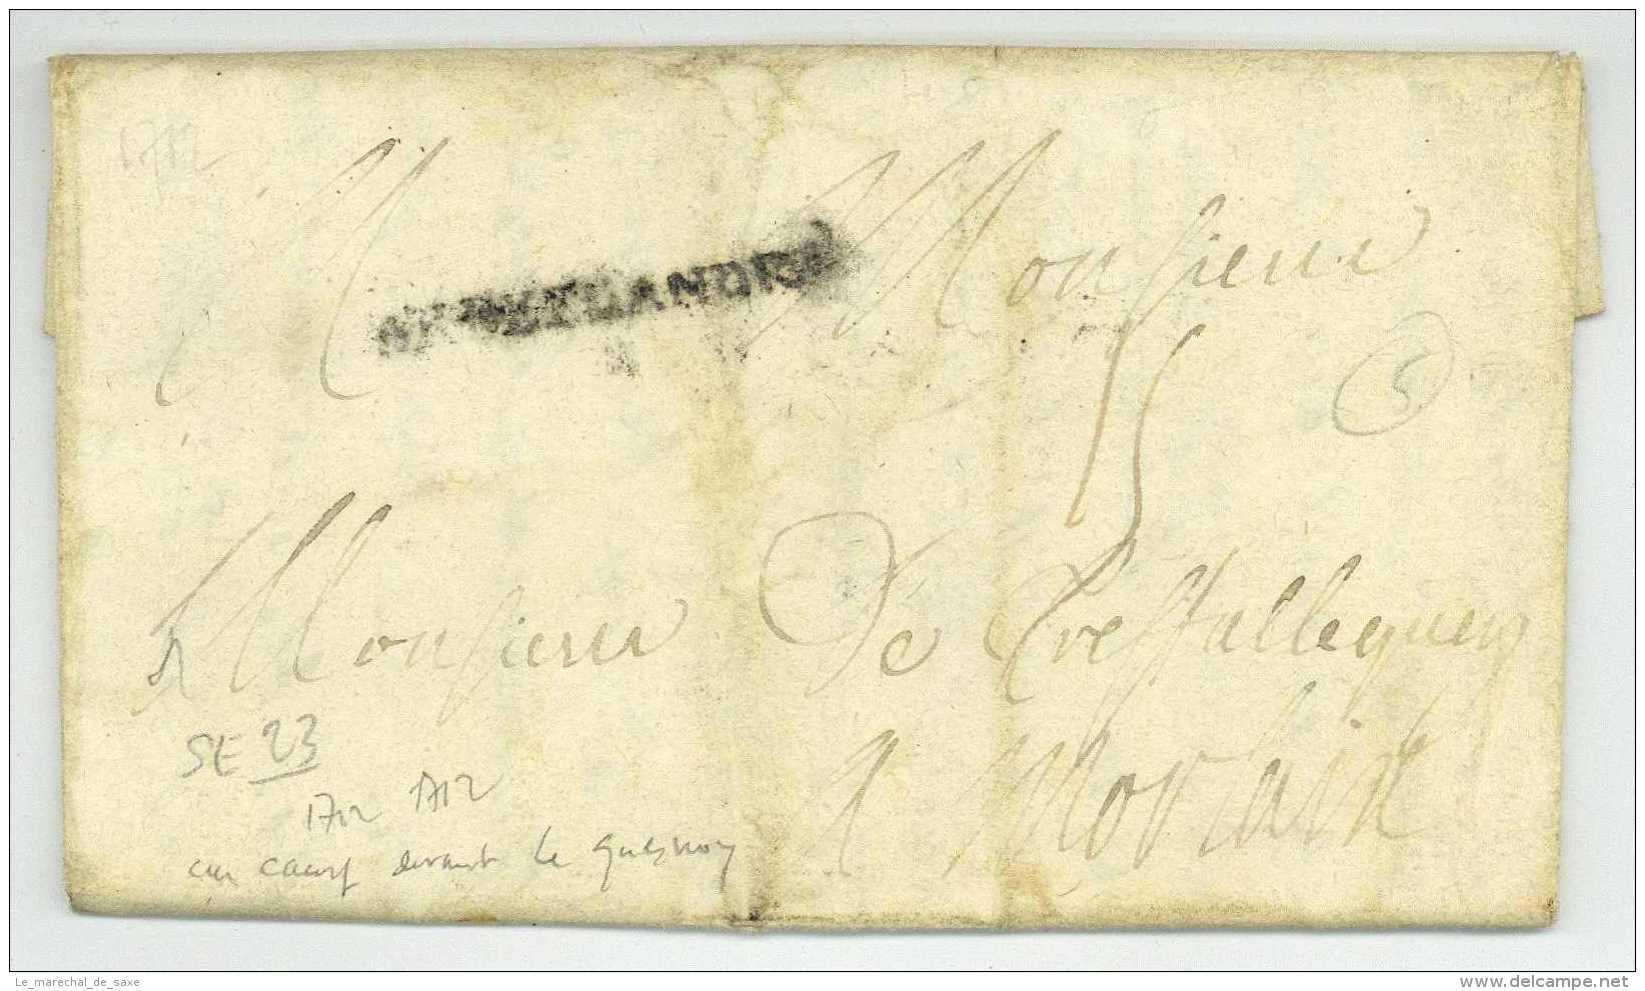 1712
AR DE FLANDRE
A Monsieur
5
5
Monsieur De Crestallequeng
A Morlaix
SE 23
1712 1712
au camp devant le Quesnoy
Le_marechal_de_saxe
delcampe.net